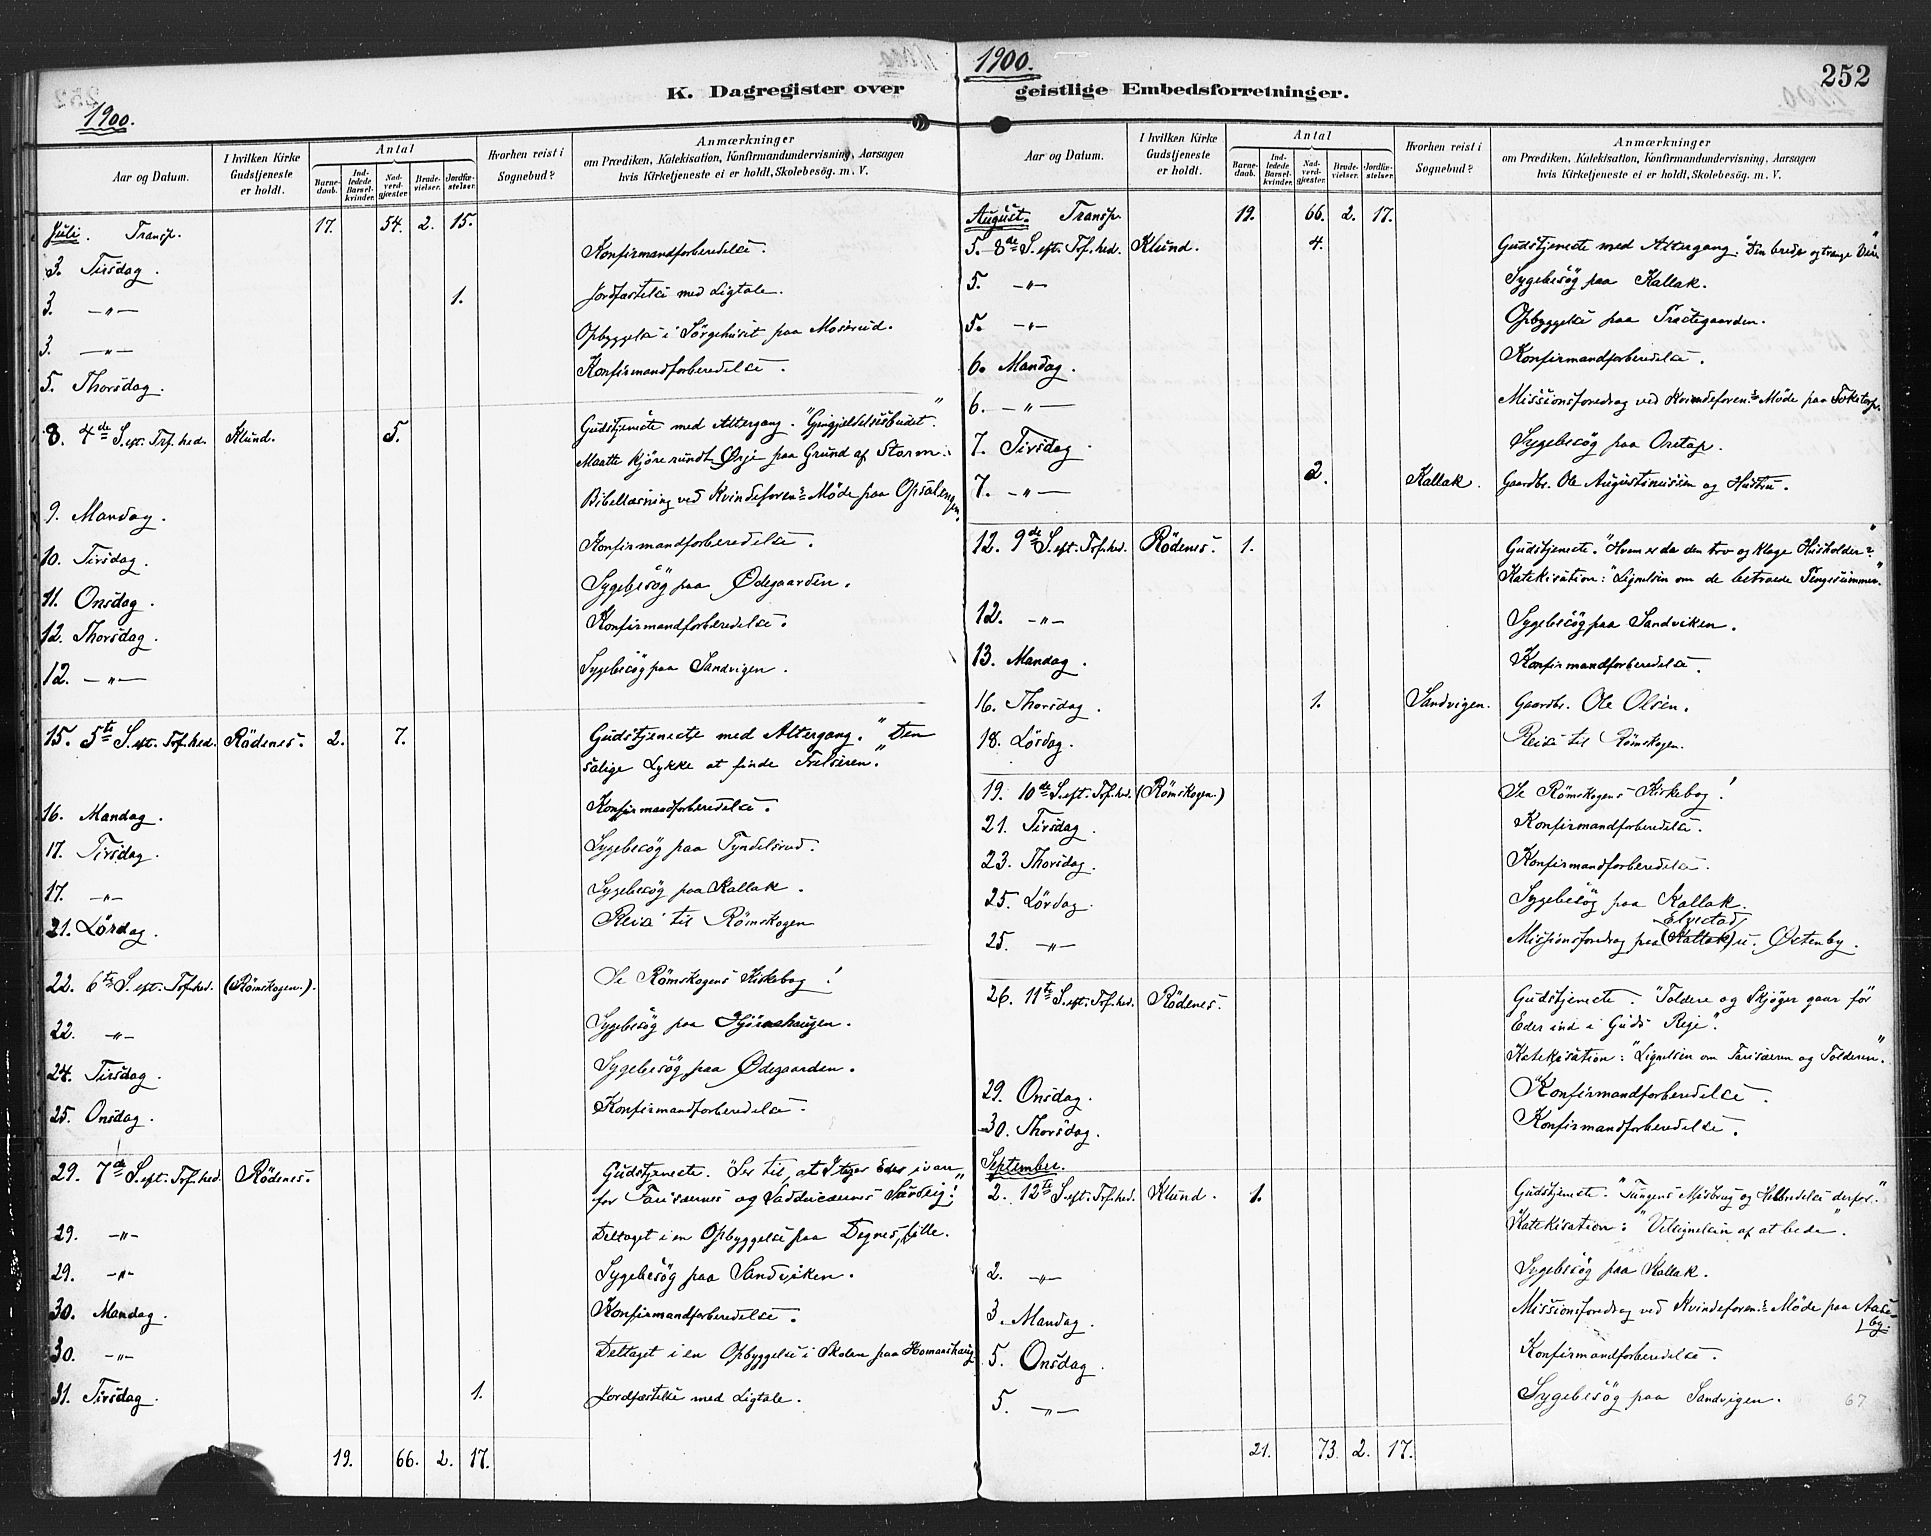 1900.
K. Dagregister over
Aar og Datum.
I hvilken Kirke Gudstjeneste er holdt.
Antal
Barnedaab.
Indledede Barselkvinder.
Nadverdgjæster.
Brudevielser.
Jordfæstelser.
Hvorhen reist i Sognebud?
Anmærkninger
om Prædiken, Katekisation, Konfirmandundervisning, Aarsagen
hvis Kirketjeneste ei er holdt, Skolebesøg. m. V.
Juli. Transp. 17. 54. 2. 15.
3. Tirsdag. Konfirmandforberedelse.
3. —„— 1. Jordfæstelse med Ligtale.
3. —„— Opbyggelse i Sørgehuset paa Moserud.
5. Thorsdag. Konfirmandforberedelse.
8. 4de S. eft. Tref. hed. Klund. 5. Gudstjeneste med Altergang. "Gjengjældelsesbudet".
Maatte kjøre rundt Ørje paa Grund af Storm.
9. Mandag. Bibellæsning ved Kvindeforen:s Møde paa Opsalengen.
10. Tirsdag. Konfirmandforberedelse.
11. Onsdag. Sygebesøg paa Ødegaarden.
12. Thorsdag. Konfirmandforberedelse.
12. —„— Sygebesøg paa Sandvigen.
15. 5te S. eft. Tref. hed. Rödenes. 2. 7. Gudstjeneste med Altergang. "Den
salige Lykke at finde Frelseren."
16. Mandag. Konfirmandforberedelse.
17. Tirsdag. Sygebesøg paa Tyndelsrud.
17. —„— Sygebesøg paa Kallak.
21. Lørdag. Reise til Römskogen
22. 6te S. eft. Tref. hed. (Römskogen.). Se Römskogens Kirkebog!
22. —„— Sygebesøg paa
24. Tirsdag. Sygebesøg paa Ødegaarden.
25. Onsdag. Konfirmandforberedelse.
29. 7de S. eft. Tref. hed. Rödenes. Gudstjeneste. "Ser til, at I tager Eder i vare
for Farisæernes og Sadducæernes Surdeig!"
29. —„— Deltaget i en Opbyggelse paa
29. —„— Sygebesøg paa Sandviken.
30. Mandag. Konfirmandforberedelse.
30. —„— Deltaget i en Opbyggelse i Skolen paa Homanshaug
31. Tirsdag. 1. Jordfæstelse med Ligtale.
19. 66. 2. 17.
1900.
252
geistlige Embedsforretninger.
Aar og Datum.
I hvilken Kirke Gudstjeneste er holdt.
Antal
Barnedaab.
Indledede Barselkvinder.
Nadverdgjæster.
Brudevielser.
Jordfæstelser.
Hvorhen reist i Sognebud?
Anmærkninger
om Prædiken, Katekisation, Konfirmandundervisning, Aarsagen
hvis Kirketjeneste ei er holdt, Skolebesøg. m. V.
August. Transp. 19. 66. 2. 17.
5. 8de S. eft. Tref. hed. Klund. 4. Gudstjeneste med Altergang. "Den brede og trange Vei"
5. —„— Sygebesøg paa Kallak.
5. —„— Opbyggelse paa Præstegaarden.
6. Mandag. Konfirmandforberedelse.
6. —„— Missionsforedrag ved Kvindeforen:s Møde paa
7. Tirsdag. Sygebesøg paa
7. —„— 2. Kallak. Gaardbr. Ole Augustinussen og Hustru.
12. 9de S. eft. Tref. hed. Rödenes. 1. Gudstjeneste. "Hvem er da den tro og kloge Husholder?"
Katekisation: "Lignelsen om de betroede Pengesummer."
12. —„— Sygebesøg paa Sandviken.
13. Mandag. Konfirmandforberedelse.
16. Thorsdag. 1. Sandvigen. Gaardbr. Ole Olsen.
18. Lørdag. Reise til Römskogen.
19. 10de S. eft. Tref. hed. (Römskogen.) Se Römskogens Kirkebog!
21. Tirsdag. Konfirmandforberedelse.
23. Thorsdag. Konfirmandforberedelse.
25. Lørdag. Sygebesøg paa Kallak.
Elvestad
25. —„— Missionsforedrag paa (Kallak) u. Østenby.
26. 11te S. eft. Tref. hed. Rödenes. Gudstjeneste. "Toldere og Skjøger gaar før
Eder ind i Guds Rige".
Katekisation: "Lignelsen om Farisæeren og Tolderen".
29. Onsdag. Konfirmandforberedelse.
30. Thorsdag. Konfirmandforberedelse.
September.
2. 12te S. eft. Tref. hed. Klund. 1. Gudstjeneste. "Tungens Misbrug og Helbredelse derfor."
Katekisation: "Velsignelsen af at bede".
2. —„— Sygebesøg paa Kallak.
3. Mandag. Missionsforedrag ved Kvindeforen:s Møde paa Aaseby.
5. Onsdag. Konfirmandforberedelse.
5. —„— Sygebesøg paa Sandvigen. 67
21. 73. 2. 17.